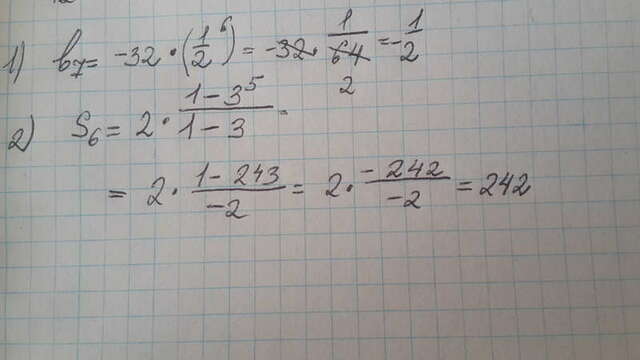 1) b₇ = -32 · (1/2⁶) = -32 · 1/64 = -1/2
2
2) S₆ = 2 · (1-3⁵)/(1-3) =
= 2 · (1-243)/(-2) = 2 · (-242)/(-2) = 242